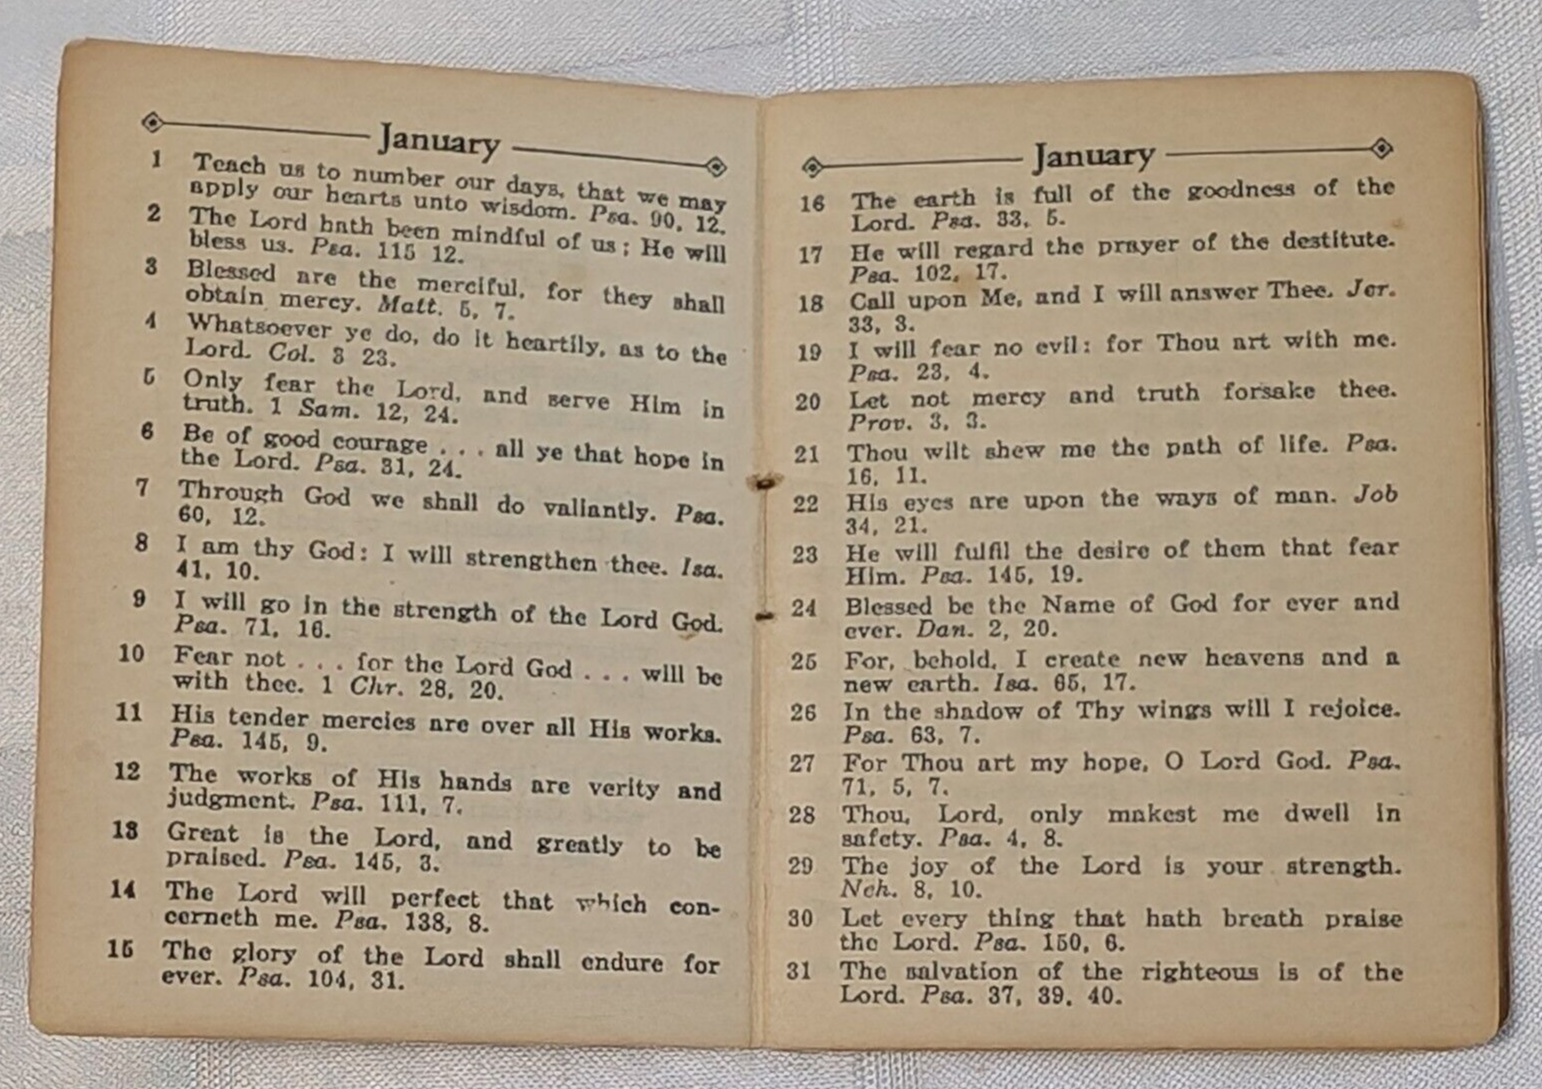 January
1 Teach us to number our days, that we may
apply our hearts unto wisdom. Psa. 90, 12.
2 The Lord hath been mindful of us; He will
bless us. Psa. 115 12.
3 Blessed are the merciful, for they shall
obtain mercy. Matt. 5, 7.
4 Whatsoever ye do, do it heartily, as to the
Lord. Col. 3 23.
5 Only fear the Lord, and serve Him in
truth. 1 Sam. 12, 24.
6 Be of good courage . . . all ye that hope in
the Lord. Psa. 31, 24.
7 Through God we shall do valiantly. Psa.
60, 12.
8 I am thy God: I will strengthen thee. Isa.
41, 10.
9 I will go in the strength of the Lord God.
Psa. 71, 16.
10 Fear not . . . for the Lord God . . . will be
with thee. 1 Chr. 28, 20.
11 His tender mercies are over all His works.
Psa. 145, 9.
12 The works of His hands are verity and
judgment. Psa. 111, 7.
13 Great is the Lord, and greatly to be
praised. Psa. 145, 3.
14 The Lord will perfect that which con-
cerneth me. Psa. 138, 8.
15 The glory of the Lord shall endure for
ever. Psa. 104, 31.
January
16 The earth is full of the goodness of the
Lord. Psa. 33, 5.
17 He will regard the prayer of the destitute.
Psa. 102, 17.
18 Call upon Me, and I will answer Thee. Jer.
33, 3.
19 I will fear no evil: for Thou art with me.
Psa. 23, 4.
20 Let not mercy and truth forsake thee.
Prov. 3, 3.
21 Thou wilt shew me the path of life. Psa.
16, 11.
22 His eyes are upon the ways of man. Job
34, 21.
23 He will fulfil the desire of them that fear
Him. Psa. 145, 19.
24 Blessed be the Name of God for ever and
ever. Dan. 2, 20.
25 For, behold, I create new heavens and a
new earth. Isa. 65, 17.
26 In the shadow of Thy wings will I rejoice.
Psa. 63, 7.
27 For Thou art my hope, O Lord God. Psa.
71, 5, 7.
28 Thou, Lord, only makest me dwell in
safety. Psa. 4, 8.
29 The joy of the Lord is your strength.
Neh. 8, 10.
30 Let every thing that hath breath praise
the Lord. Psa. 150, 6.
31 The salvation of the righteous is of the
Lord. Psa. 37, 39, 40.